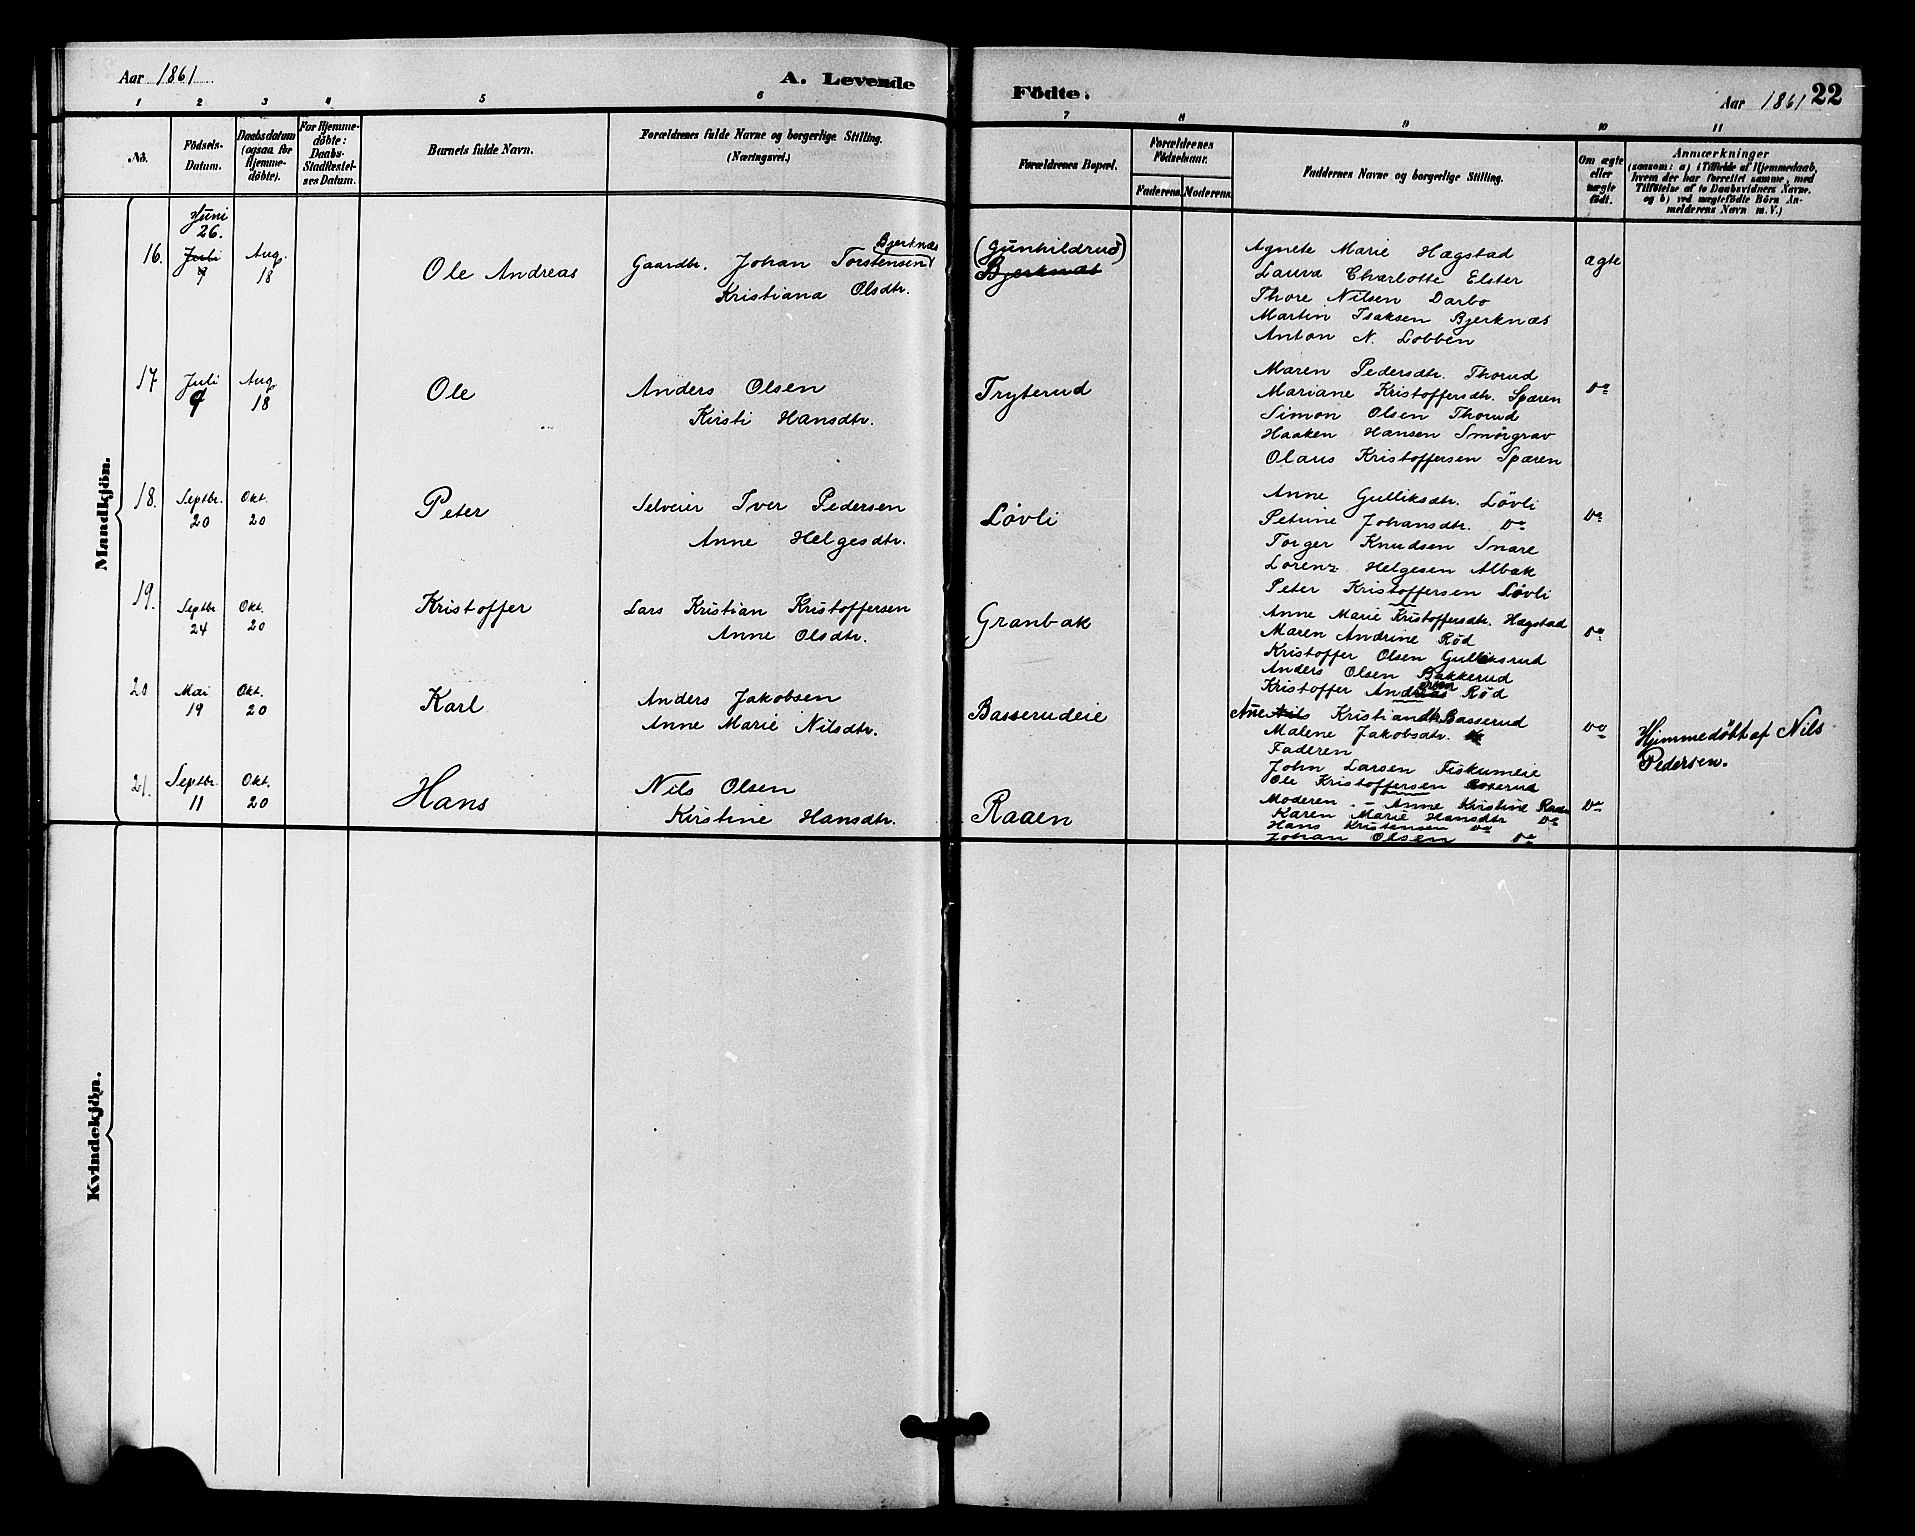 Aar 1861
A. Levende
Födte.
Aar 1861 22
1 2 3 4 5 6 7 8 9 10 11
No.
Födsels-
Datum.
Daabsdatum
(ogsaa for
Hjemme-
döbte).
For Hjemme-
döbte:
Daabs-
Stadfæstel-
ses Datum.
Barnets fulde Navn.
Forældrenes fulde Navne og borgerlige Stilling.
(Næringsvei.)
Forældrenes Bopæl.
Forældrenes
Födselsaar.
Faderens. Moderens.
Faddernes Navne og borgerlige Stilling.
Om ægte
eller
uægte
födt.
Anmærkninger
(saasom: a) i Tilfælde af Hjemmedaab,
hvem der har forrettet samme, med
Tilföielse af to Daabsvidners Navne,
og b) ved uægtefödte Börn An-
melderens Navn m. V.)
Mandkjön.
16.
Juni
26.
Juli
9
Aug.
18
Ole Andreas
Bjerknæs
Gaardbr. Johan Torstensen
Kristiana Olsdtr.
(Gunhildrud)
Bjerknæs
Agnete Marie Hægstad
Laura Charlotte Elster
Thore Nilsen Darbo
Martin Isaksen Bjerknæs
Anton N. Lobben
ægte
17
Juli
9
Aug
18
Ole
Anders Olsen
Kirsti Hansdtr.
Tryterud
Maren Pedersdtr. Thorud
Mariane Kristoffersdtr. Spæren
Simon Olsen Thorud
Haaken Hansen Smørgrav
Olaus Kristoffersen Spæren
Do
18.
Septbr.
20
Okt.
20
Peter
Selveier Iver Pedersen
Anne Helgesdtr.
Løvli
Anne Gulliksdtr. Løvli
Petrine Johansdtr. Do
Torger Knudsen Snare
Lorenz Helgesen Albæk
Peter Kristoffersen Løvli
Do
19.
Septbr
24
Okt.
20
Kristoffer
Lars Kristian Kristoffersen
Anne Olsdtr.
Granbæk
Anne Marie Kristoffersdtr. Hægstad
Maren Andrine Rød
Kristoffer Olsen Gulliksrud
Anders Olsen Bakkerud
Kristoffer Andersen Rød
Do
20
Mai
19
Okt.
20
Karl
Anders Jakobsen
Anne Marie Nilsdtr.
Basserudeie
Ane Nils Kristiandtr Basserud
Malene Jakobsdtr.
Faderen
John Larsen Fiskumeie
Ole Kristoffersen Basserud
Do
Hjemmedøbt af Nils
Pedersen.
21.
Septbr.
11
Okt.
20
Hans
Nils Olsen
Kirstine Hansdtr.
Raaen
Moderen. – Anne Kristine Raaen
Karen Marie Hansdtr Do
Hans Kristensen Do
Johan Olsen Do
Do
Kvindekjön.